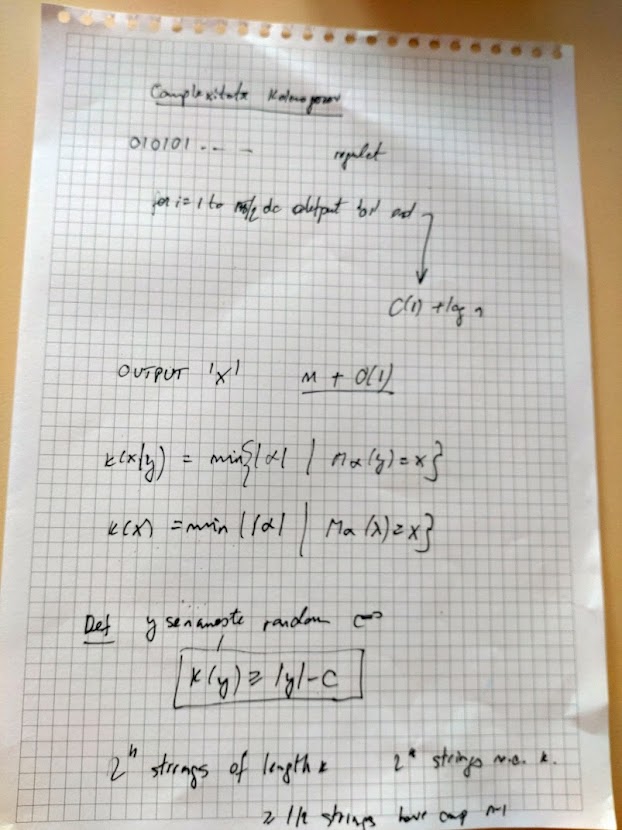 Complexitate Kolmogorov
010101 .. - - regulat
for i = 1 to n/2 do output end
O(1) + log n
OUTPUT 'X' n + O(1)
K(x|y) = min{|α| | Mα(y) = x}
K(x) = min{|α| | Mα(λ) = x}
Def y se numeste random ⇔
K(y) ≥ |y| - C
2^n strings of length 2^k strings k.
≥ 1/2 strings have comp n-1